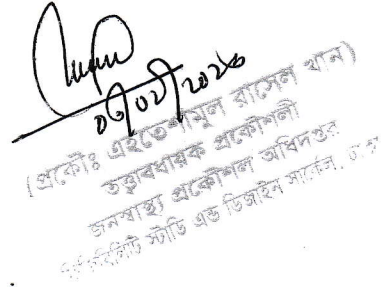 ০৩/০২/২০২৬
(প্রকৌঃ এহতেশামুল রাসেল খান)
তত্ত্বাবধায়ক প্রকৌশলী
জনস্বাস্থ্য প্রকৌশল অধিদপ্তর
ফিজিবিলিটি স্টাডি এন্ড ডিজাইন সার্কেল,